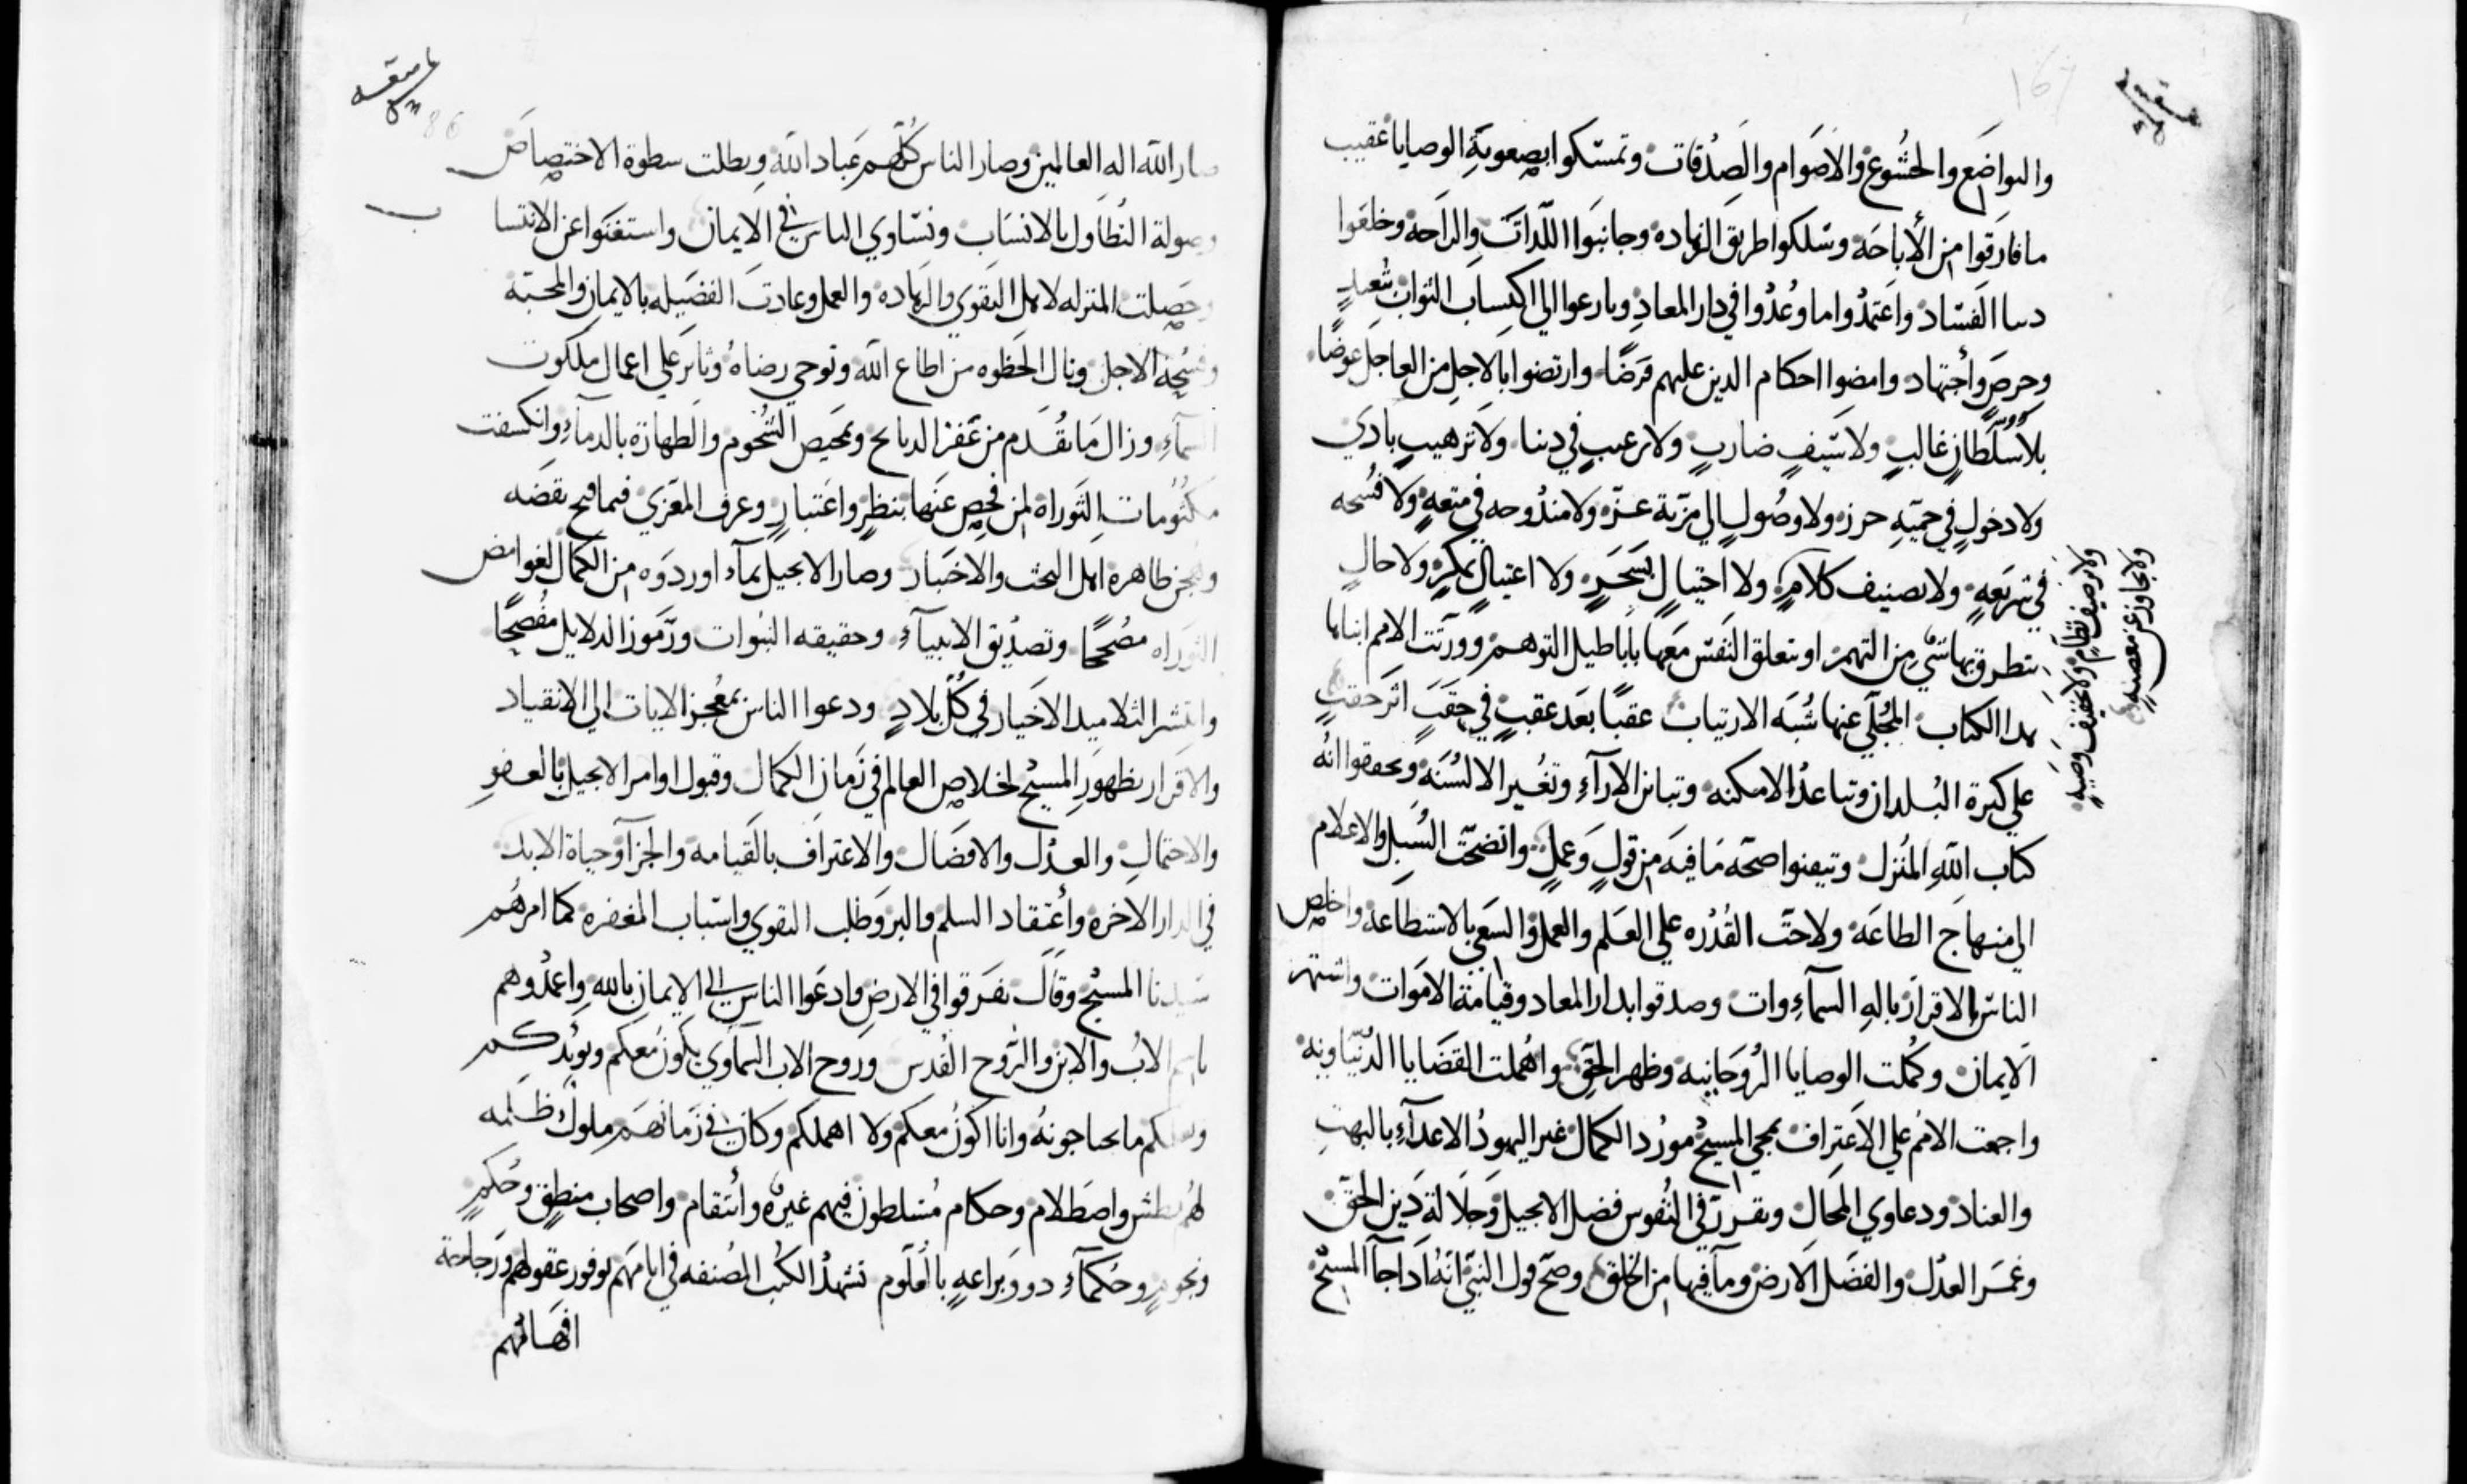 والتواضع والخشوع والاصوام والصدقات وتمسكوا بصعوبة الوصايا عقيب
ما فارقوا من الأباحه وسلكوا طريق الزهاده وجانبوا اللذات والراحه وخلعوا
دنيا الفساد واعتمدوا ما وعدوا في دار المعاد وسارعوا الي اكتساب الثواب
وحرص واجتهاد وامضوا احكام الدين عليهم فرضا وارتضوا بالاجل من العاجل عوضا
بلا سلطان غالب ولا سيف ضارب ولا ترغيب في دنيا ولا ترهيب بادي
ولا دخول في حميه حرزه ولا وصول الي مزية عزه ولا مندوحه في متعه ولا فسحه
في شريعه ولا تصنيف كلام ولا احتيال بسحر ولا اغتيال بمكر ولا حال
يتطرق بها شي من التهم او يتعلق النفس معها باباطيل التوهم وورثت الامم ابناءها
هدا الكتاب المجلي عنها شبه الارتياب عقبا بعد عقب في حقب اثر حقب
علي كثرة البلدان وتباعد الامكنه وتباين الاراء وتغيير الالسنه وتحققوا انه
كتاب الله المنزل وتيقنوا صحه ما فيه من قول وعمل واتضحت السبل والاعلام
الي منهاج الطاعه ولاحت القدره علي العلم والعمل والسعي بالاستطاعه واخلص
الناس الاقرار باله السماءوات وصدقوا بدار المعاد وقيامة الاموات واشتهر
الايمان وكملت الوصايا الروحانيه وظهر الحق واهملت القضايا الدنياويه
واجمعت الامم علي الاعتراف بمجي المسيح مورد الكمال غير اليهود الاعداء بالبهت
والعناد ودعاوي المحال وتقرر في النفوس فضل الانجيل وجلالة دين الحق
وغمر العدل والفضل الارض وما فيها من الخلق وصح قول النبي انه ادا جا المسيح
ولا ترصيف نظام ولا تخفيف وصيه
ولا تجاوز عن معصيه
صار الله اله العالمين وصار الناس كلهم عباد الله وبطلت سطوة الاختصاص
وصولة التطاول بالانساب وتساوي الناس في الايمان واستغنوا عن الانتسا
ب
وحصلت المنزله لاهل التقوي والزهاده والعمل وعادت الفضيله بالايمان والمحبة
وفسحة الاجل ونال الحظوه من اطاع الله وتوخي رضاه وثابر علي اعمال ملكوت
السماء وزال ما تقدم من الدبايح وتمحيص الشحوم والطهارة بالدماء وانكسفت
مكتومات التوراه لمن فحص عنها بنظر واعتبار وعرف المغزي فيما قبح بقضه
ظاهره اهل البحث والاخبار وصار الانجيل بما اوردوه من الكمال لغوامض
التوراه مصححا وتصديق الانبياء وحقيقه النبوات ورموز الدلايل مفصحا
وانتشر التلاميد الاخيار في كل بلاد ودعوا الناس بمعجز الايات الي الانقياد
والاقرار بظهور المسيح لخلاص العالم في زمان الكمال وقبول اوامر الانجيل بالعفو
والاحتمال والعدل والافضال والاعتراف بالقيامه والجزا وحياة الابد
في الدار الاخره وأعتقاد السلم والبر وطلب التقوي واسباب المغفره كما امرهم
سيدنا المسيح وقال تفرقوا في الارض وادعوا الناس الي الايمان بالله واعمدوهم
باسم الاب والابن والروح القدس وروح الاب السماوي يكون معكم ويويدكم
ما تحتاجونه وانا اكون معكم ولا اهملكم وكان في زمانهم ملوك ظلمه
لهم بطش واصطلام وحكام متسلطون فيهم غيره وأنتقام واصحاب منطق وحكم
ونجوم وحكماء دوو براعه باقلام تشهد الكتب المصنفه في ايامهم بوفور عقولهم ورجاحة
افهامهم